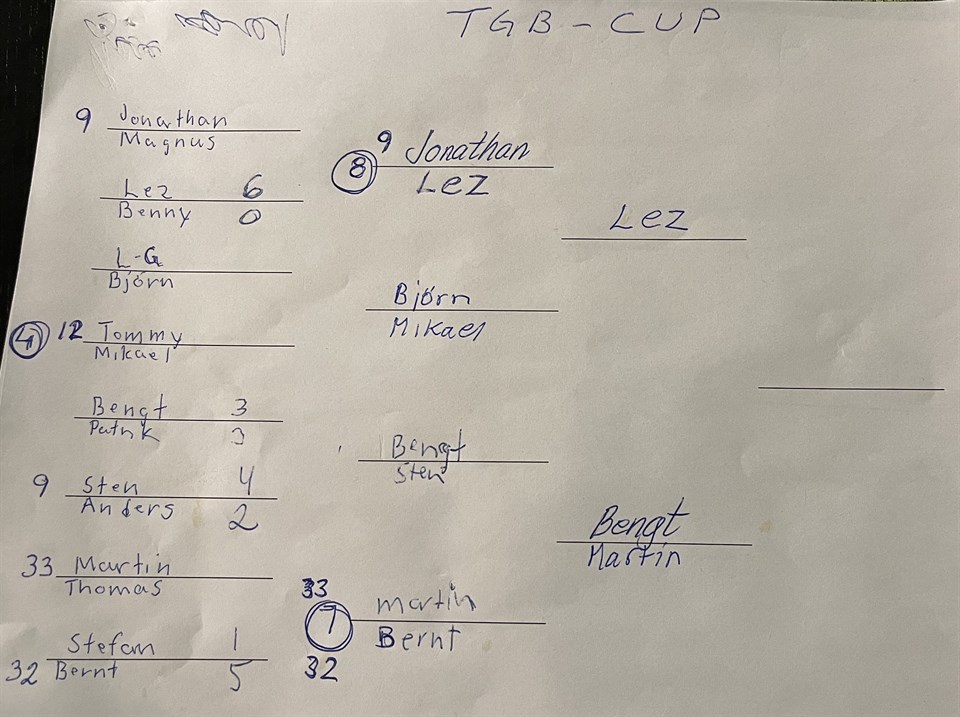 TGB - CUP
9 Jonathan
Magnus
Lez 6
Benny 0
L-G
Björn
4 12 Tommy
Mikael
Bengt 3
Patrik 3
9 Sten 4
Anders 2
33 Martin
Thomas
Stefan 1
32 Bernt 5
9 Jonathan
8
Lez
Björn
Mikael
Bengt
Sten
33 martin
7
32 Bernt
Lez
Bengt
Martin